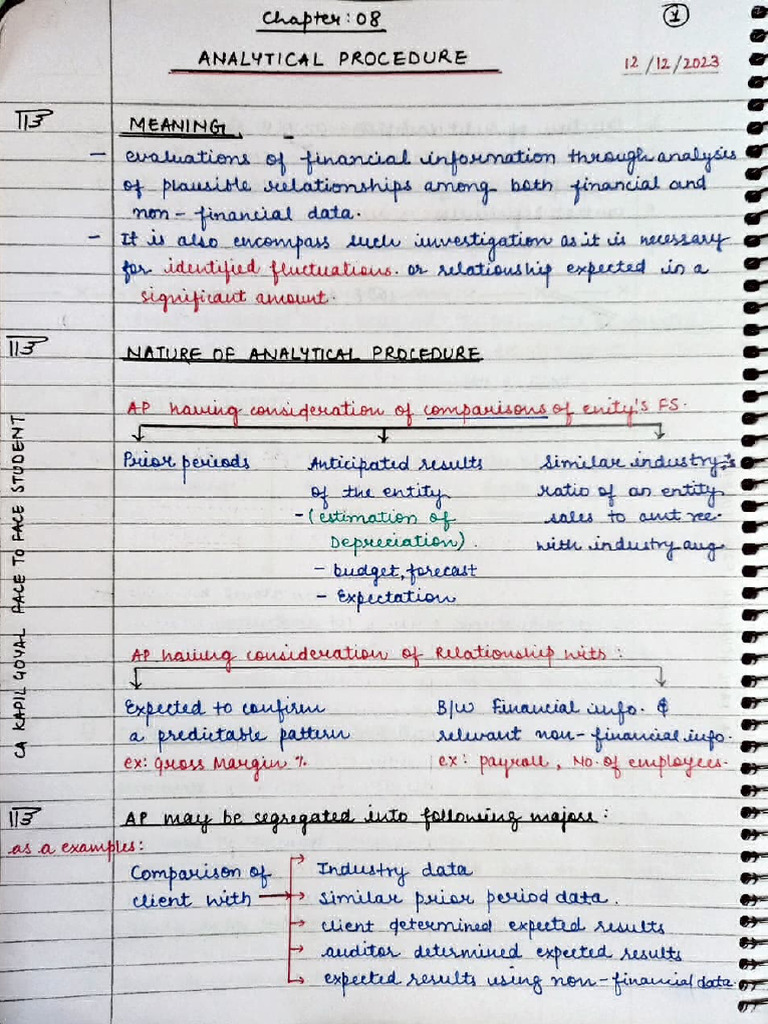 Chapter: 08
1
ANALYTICAL PROCEDURE
12/12/2023
MEANING
- evaluations of financial information through analysis
of plausible relationships among both financial and
non-financial data.
- It is also encompass such investigation as it is necessary
for identified fluctuations. or relationship expected in a
significant amount.
NATURE OF ANALYTICAL PROCEDURE
AP having consideration of comparisons of enity's FS.
Prior periods
Anticipated results
of the entity
- (estimation of
Depreciation).
- budget, forecast
- Expectation
Similar industry
ratio of an entity
sales to amt rec.
with industry avg
AP having consideration of Relationship with:
Expected to confirm
a predictable pattern
ex: Gross Margin %
B/w Financial info. &
relevant non-financial info.
ex: payroll, No. of employees.
AP may be segregated into following majors:
as a examples:
Comparison of
client with
Industry data
similar prior period data.
client determined expected results
auditor determined expected results
expected results using non-financial data.
CA KAPIL GOYAL FACE TO FACE STUDENT